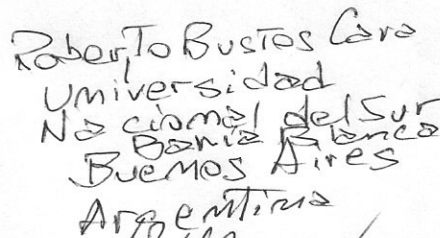 Roberto Bustos Cara
Universidad
Nacional del Sur
Bahía Blanca
Buenos Aires
Argentina